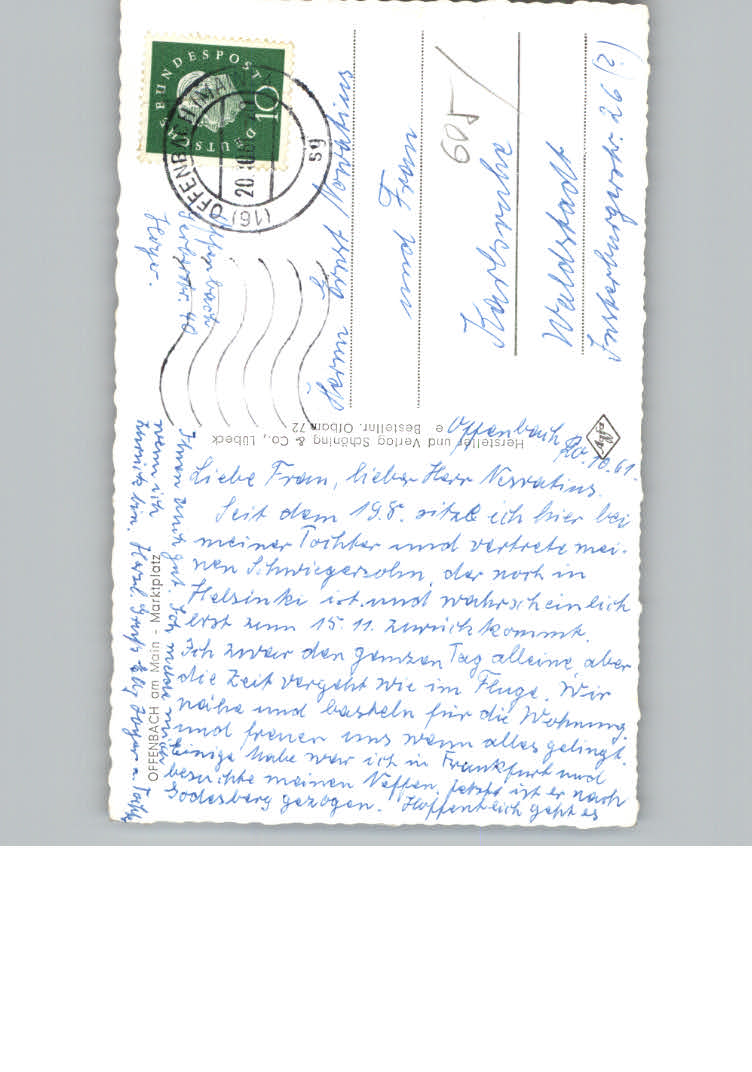 Offenbach, 20.10.61.
Liebe Frau, lieber Herr Nervatius.
Seit dem 19.8. sitze ich hier bei
meiner Tochter und vertrete mei-
nen Schwiegersohn, der noch in
Helsinki ist und wahrscheinlich
erst zum 15.11. zurückkommt.
Ich zwar den ganzen Tag alleine, aber
die Zeit vergeht wie im Fluge. Wir
nähe und basteln für die Wohnung
und freuen uns wenn alles gelingt.
Einige Male war ich in Frankfurt und
besuchte meinen Neffen, jetzt ist er nach
Godesberg gezogen. Hoffentlich geht es
Ihnen auch gut. Ich melde mich
wenn ich
zurück bin. Herzl.
OFFENBACH am Main - Marktplatz
Hersteller und Verlag Schöning & Co., Lübeck
Bestellnr. Ofbam 72
Agfa
DEUTSCHE BUNDESPOST
10
(16) OFFENBACH (MAIN)
20.10.61
sg
Offenbach
40
Hoyer.
605
Herrn Ernst Nervatius
und Frau
Karlsruhe
Waldstadt
Insterburgerstr. 26